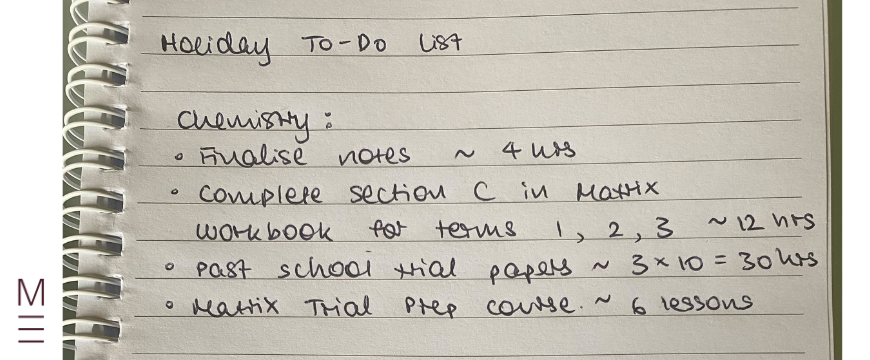 Holiday To-Do List
Chemistry:
• Finalise notes ~ 4 hrs
• Complete section C in Matrix
workbook for terms 1, 2, 3 ~ 12 hrs
• Past school trial papers ~ 3 × 10 = 30 hrs
• Matrix Trial Prep course. ~ 6 lessons
M